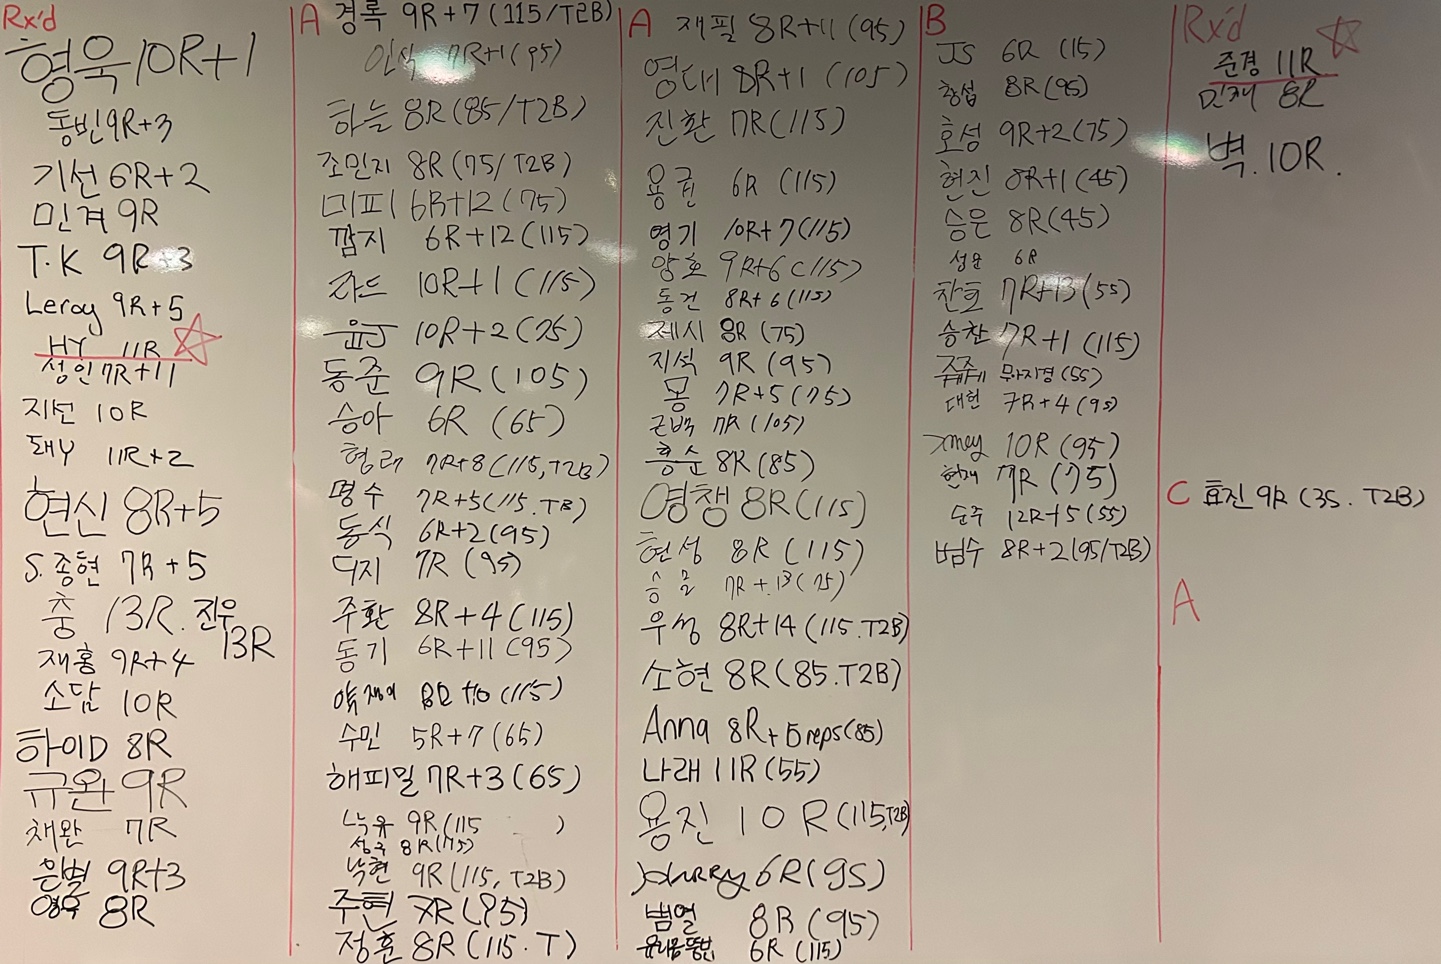 Rx'd
형욱 10R+1
동빈 9R+3
기선 6R+2
민겨 9R
T.K 9R+3
Leroy 9R+5
HY 11R
성인 7R+11
지선 10R
돼Y 11R+2
현신 8R+5
S.종현 7R+5
충 13R. 진우 13R
재홍 9R+4
소담 10R
하이D 8R
규완 9R
채완 7R
은별 9R+3
영욱 8R
A 경록 9R+7 (115/T2B)
인식 7R+1 (95)
하늘 8R (85/T2B)
조민지 8R (75/T2B)
미피 6R+12 (75)
깜지 6R+12 (115)
쟈드 10R+1 (115)
윤J 10R+2 (75)
동준 9R (105)
승아 6R (65)
형래 7R+8 (115,T2B)
명수 7R+5 (115.TB)
동식 6R+2 (95)
디지 7R (95)
주환 8R+4 (115)
동기 6R+11 (95)
(115)
수민 5R+7 (65)
해피밀 7R+3 (65)
9R (115 )
성주 8R (75)
낙현 9R (115, T2B)
주현 7R (95)
정훈 8R (115.T)
A 재필 8R+11 (95)
영대 8R+1 (105)
진환 7R (115)
용규 6R (115)
영기 10R+7 (115)
양호 9R+6 (115)
동건 8R+6 (115)
제시 8R (75)
지석 9R (95)
몽 7R+5 (75)
근백 7R (105)
흥순 8R (85)
영챙 8R (115)
현성 8R (115)
7R+13 (75)
우성 8R+14 (115.T2B)
소현 8R (85.T2B)
Anna 8R+15 reps (85)
나래 11R (55)
용진 10R (115,T2B)
6R (95)
범열 8R (95)
6R (115)
B
JS 6R (15)
창섭 8R (95)
호성 9R+2 (75)
현진 8R+1 (45)
승은 8R (45)
성운 6R
찬호 7R+13 (55)
승찬 7R+1 (115)
무지경 (55)
대현 7R+4 (95)
10R (95)
현재 7R (75)
순주 12R+5 (55)
범수 8R+2 (95/T2B)
Rx'd
준경 11R
민재 8R
벽. 10R.
C 효진 9R (35. T2B)
A